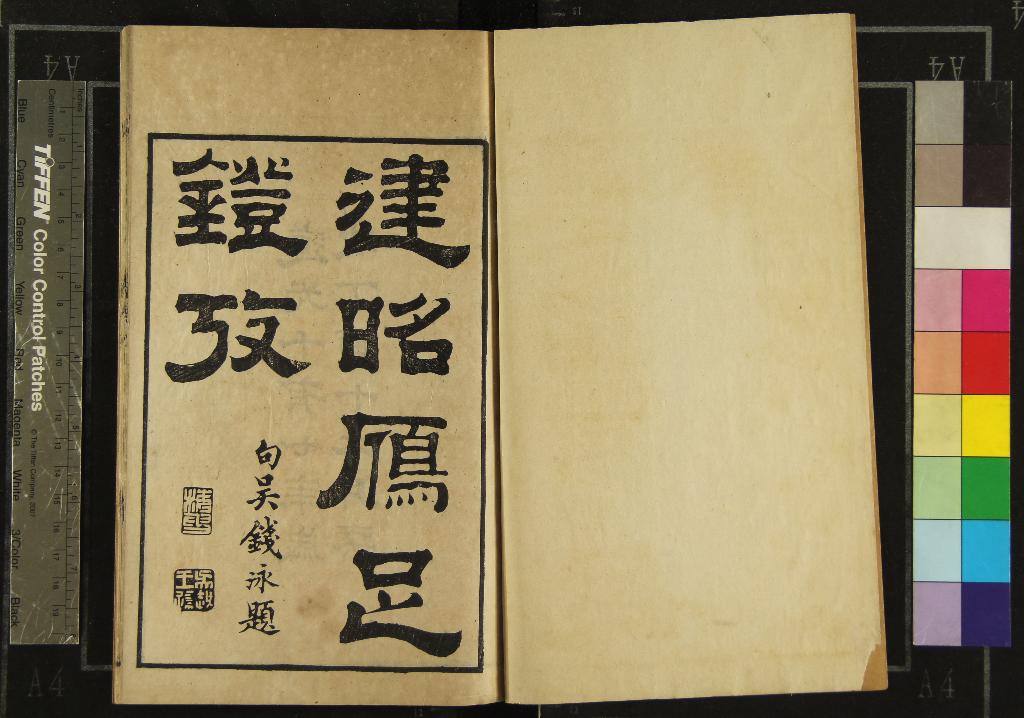 建昭鴈足
鐙攷
句吳錢泳題
梅谿
A4
A4
A4
A4
Inches
Centimetres
TIFFEN Color Control Patches
© The Tiffen Company, 2007
Blue
Cyan
Green
Yellow
Red
Magenta
White
3/Color
Black